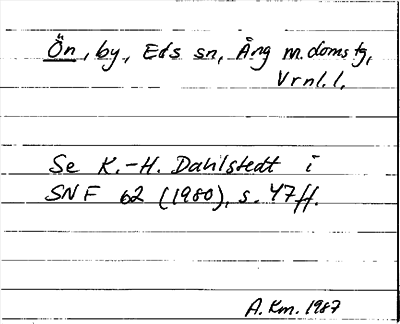 Ön, by, Eds sn, Ång m. doms tg,
Vrnl. l.
Se K.-H. Dahlstedt i
SNF 62 (1980), s. 47 ff.
A. Km. 1987